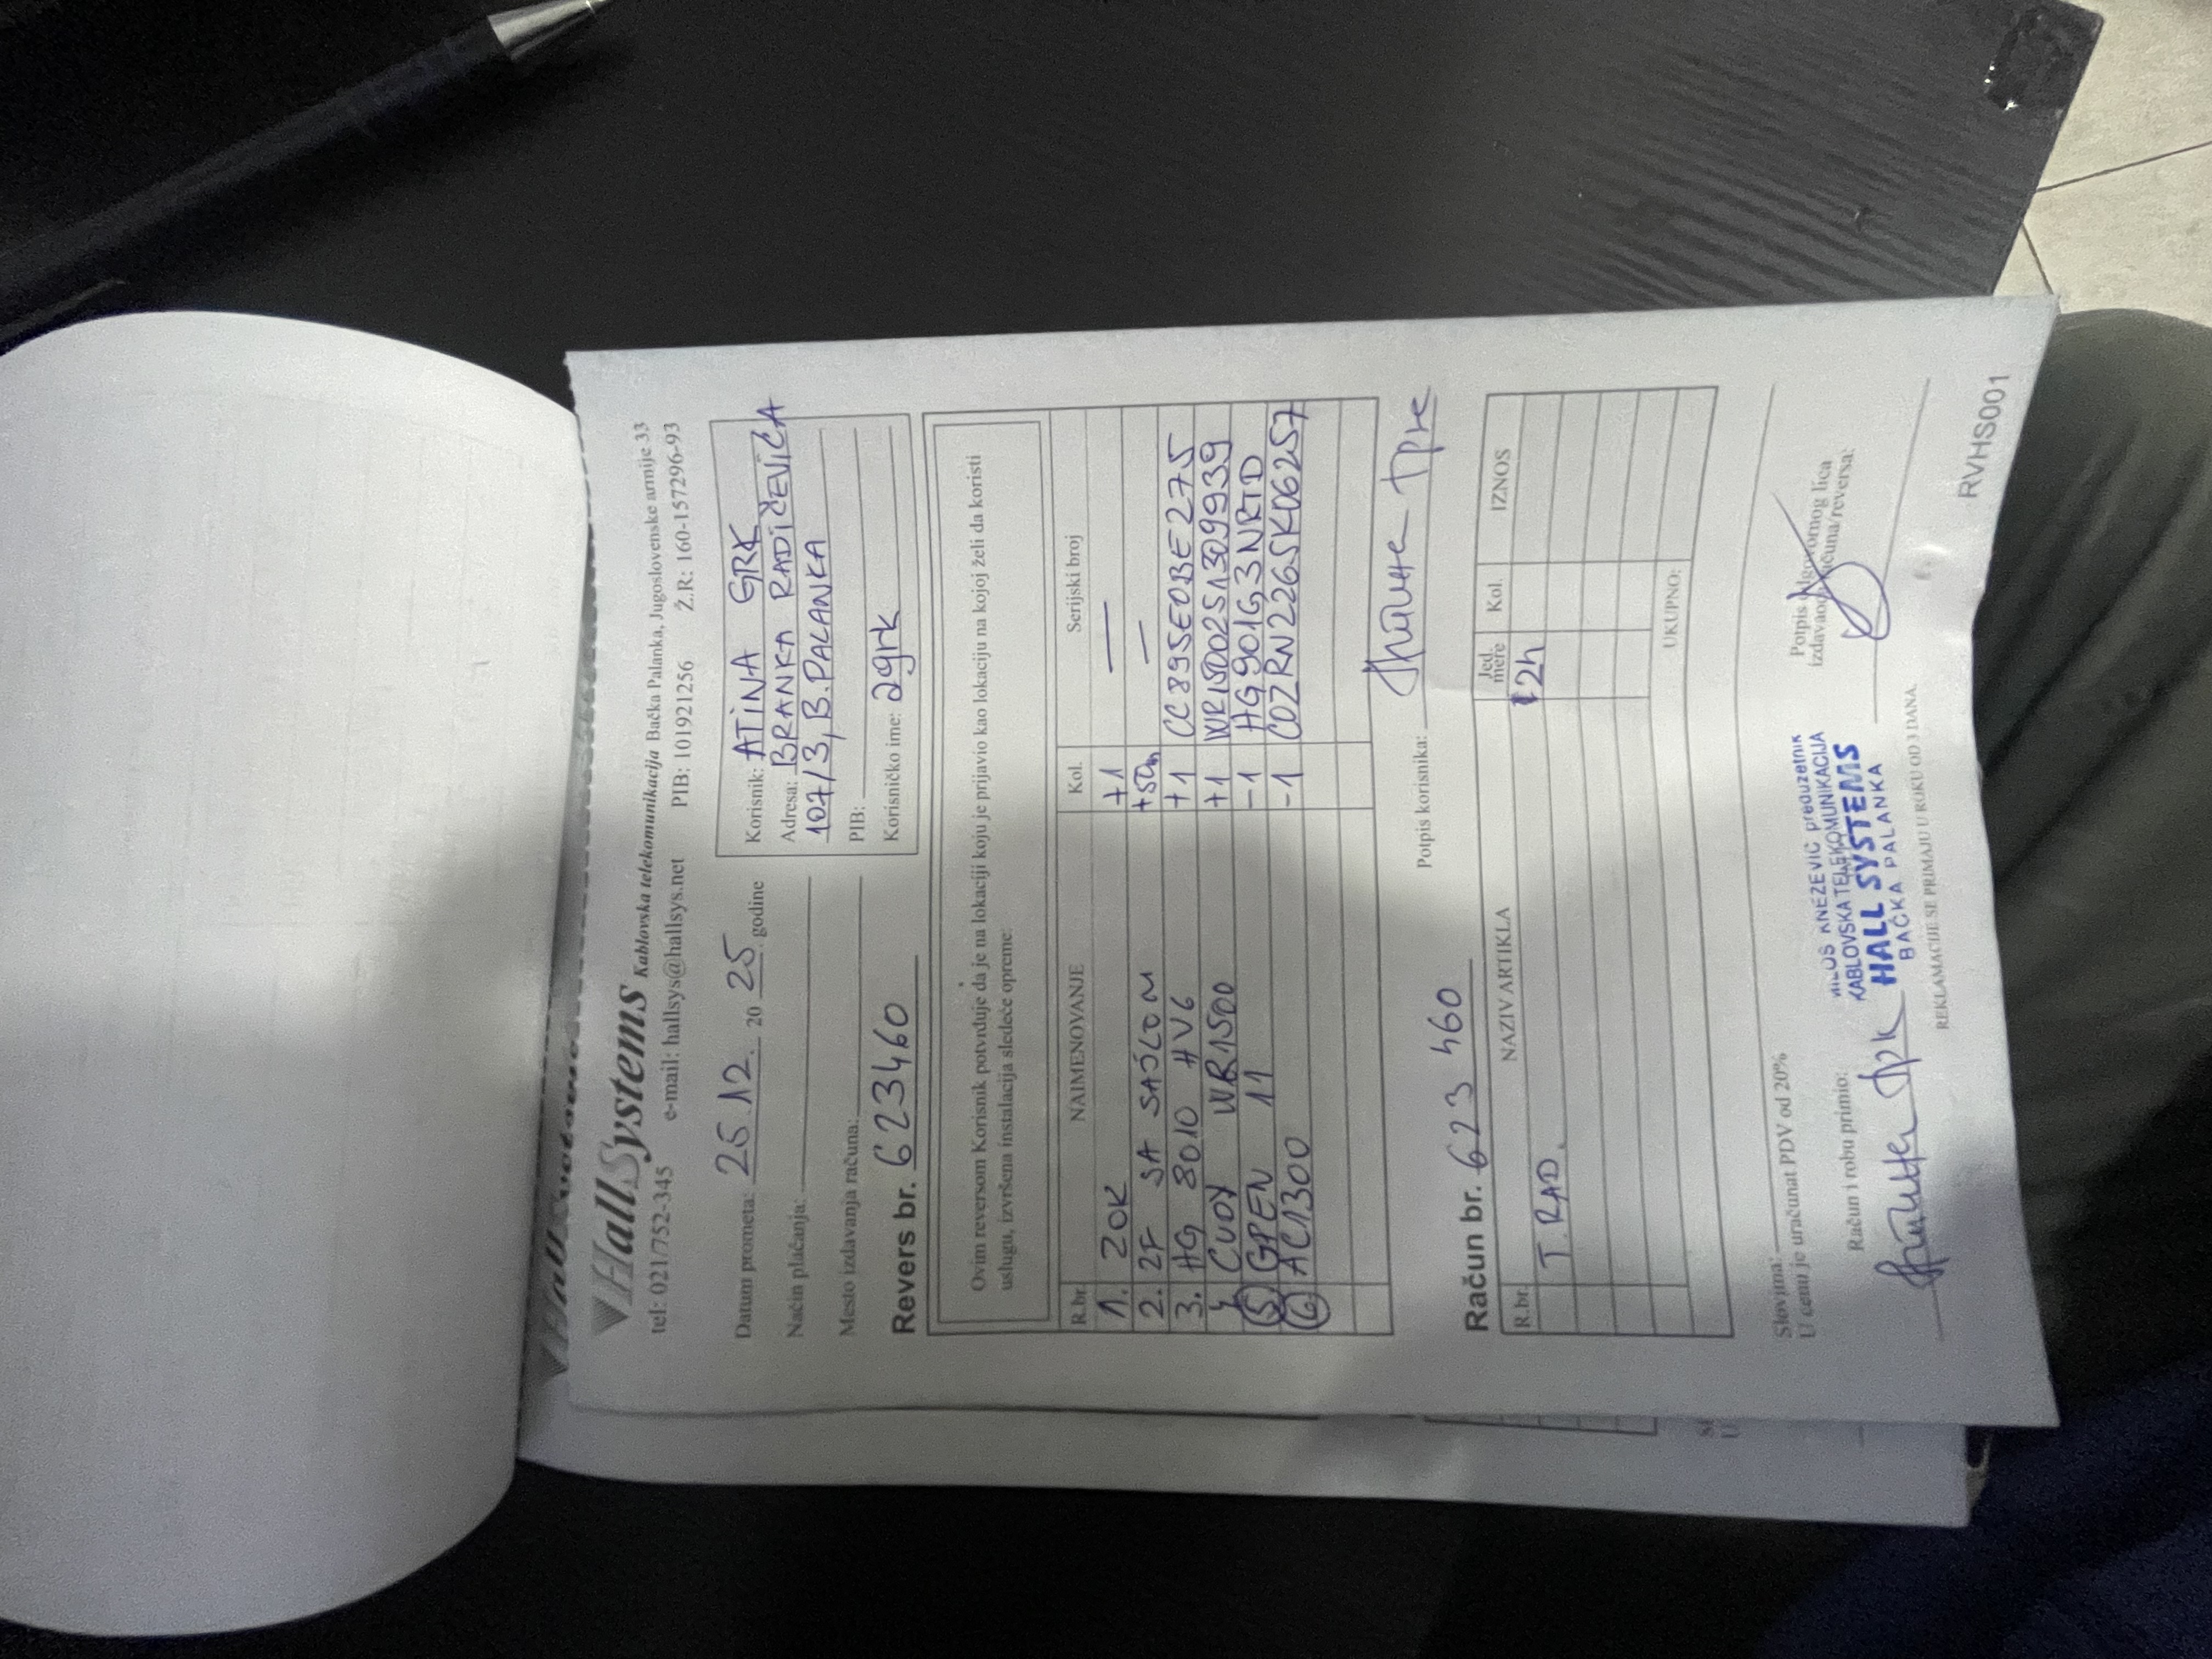 HallSystems Kablovska telekomunikacija Bačka Palanka, Jugoslovenske armije 33
tel: 021/752-345 e-mail: hallsys@hallsys.net PIB: 101921256 Ž.R: 160-157296-93
Datum prometa: 25.12. 20 25. godine
Način plaćanja:
Mesto izdavanja računa:
Korisnik: ATINA GRK
Adresa: BRANKA RADIČEVIĆA
107/3, B.PALANKA
PIB:
Korisničko ime: agrk
Revers br. 623460
Ovim reversom Korisnik potvrđuje da je na lokaciji koju je prijavio kao lokaciju na kojoj želi da koristi
uslugu, izvršena instalacija sledeće opreme:
R.br. NAIMENOVANJE Kol. Serijski broj
1. ZOK +1 —
2. 2F SA SAJLOM +50m —
3. HG 8010 HV6 +1 CC895E0BE275
4. CUDY WR1500 +1 WR1500251309939
5 GPEN 11 -1 HG901G,3NRTD
6 AC1300 -1 COZRN226SK06257
Potpis korisnika: Атина Грк
Račun br. 623460
R.br. NAZIV ARTIKLA Jed. mere Kol. IZNOS
T. RAD. 2h
UKUPNO:
Slovima:
U cenu je uračunat PDV od 20%
Račun i robu primio:
Атина Грк
MILOŠ KNEŽEVIĆ preduzetnik
KABLOVSKA TELEKOMUNIKACIJA
HALL SYSTEMS
BAČKA PALANKA
Potpis odgovornog lica
izdavaoca računa/reversa:
REKLAMACIJE SE PRIMAJU U ROKU OD 3 DANA.
RVHS001